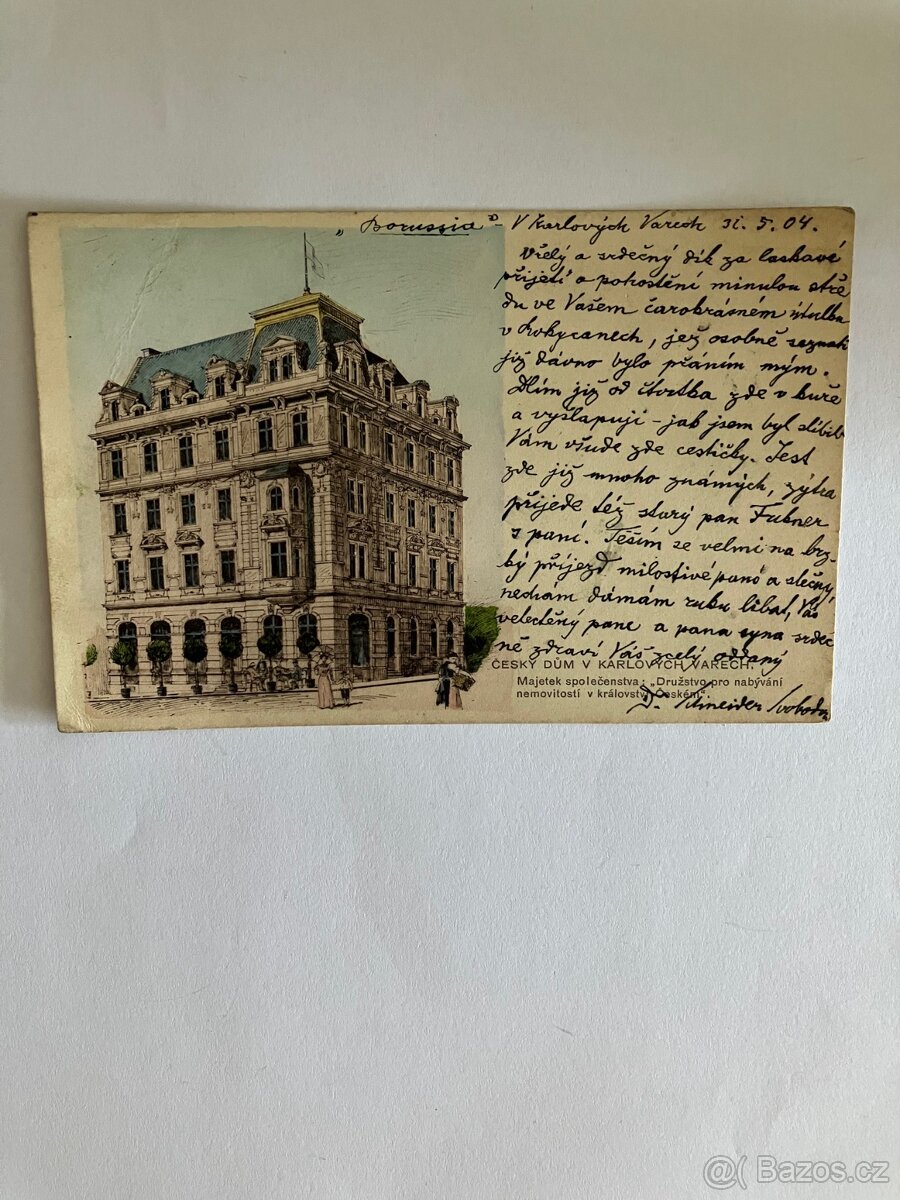 „Borussia" - V Karlových Varech 31. 5. 04.
Vřelý a srdečný dík za laskavé
přijetí a pohostění minulou stře
du ve Vašem čarokrásném útulku
v Rokycanech, jež osobně seznati
již dávno bylo přáním mým.
Dlím již od čtvrtka zde v kuře
a vyšlapuji - jak jsem byl slíbil
Vám všude zde cestičky. Jest
zde již mnoho známých, zýtra
přijede též starý pan Fubner
s paní. Těším se velmi na brz-
ký příjezd milostivé paně a slečny,
nechám dámám ruku líbat, Vás
velectěný pane a pana syna srdeč
ně zdraví Váš zcela oddaný
ČESKÝ DŮM V KARLOVÝCH VARECH.
Majetek společenstva: „Družstvo pro nabývání
nemovitostí v království Českém".
Dr. Schneider Svoboda
@( Bazos.cz